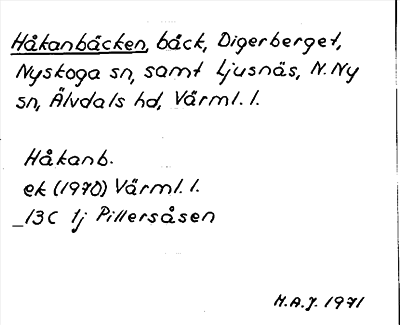 Håkanbäcken, bäck, Digerberget,
Nyskoga sn, samt Ljusnäs, N. Ny
sn, Älvdals hd, Värml. l.
Håkanb.
ek (1970) Värml. l.
_13C 1j Pillersåsen
H.A.J. 1971